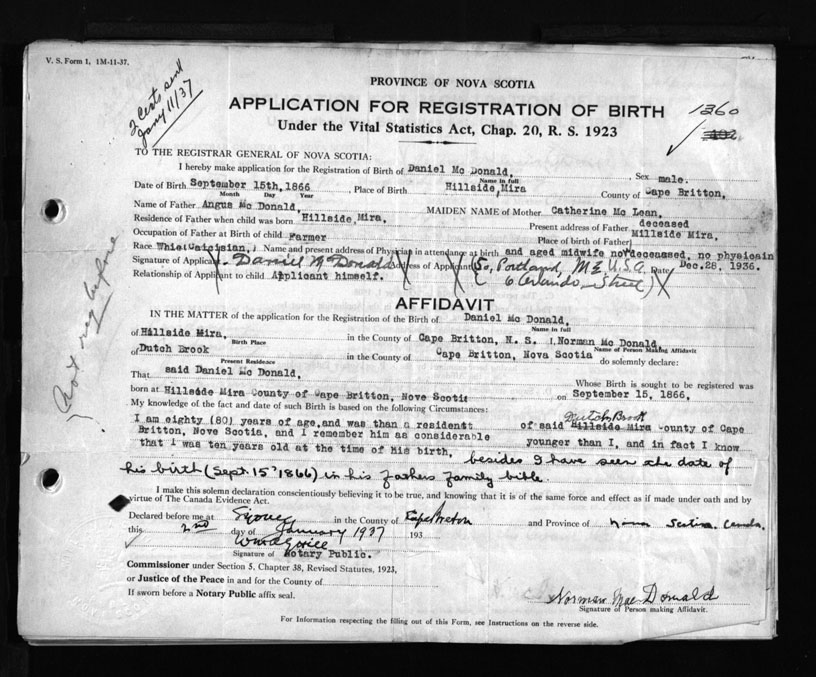 V. S. Form 1, 1M-11-37.
2 Certs sent
Jany 11/37
PROVINCE OF NOVA SCOTIA
APPLICATION FOR REGISTRATION OF BIRTH
1260
Under the Vital Statistics Act, Chap. 20, R. S. 1923
TO THE REGISTRAR GENERAL OF NOVA SCOTIA:
I hereby make application for the Registration of Birth of Daniel Mc Donald, Sex male.
Name in full
Date of Birth September 15th, 1866 Place of Birth Hillside, Mira County of Cape Britton,
Month Day Year
Name of Father Angus Mc Donald, MAIDEN NAME of Mother Catherine Mc Lean,
Residence of Father when child was born Hillside, Mira. Present address of Father deceased
Occupation of Father at Birth of child Farmer Place of birth of Father Millside Mira,
Race Whie(Caicisian,) Name and present address of Physician in attendance at birth and aged midwife now deceased, no physicain
Signature of Applicant Daniel McDonald Address of Applicant So, Portland, ME U.S.A. Date Dec.28, 1936.
6 Street
Relationship of Applicant to child Applicant himself.
not reg before
AFFIDAVIT
IN THE MATTER of the application for the Registration of the Birth of Daniel Mc Donald,
Name in full
of Hillside Mira, in the County of Cape Britton, N. S. I, Norman Mc Donald
Birth Place Name of Person Making Affidavit
of Dutch Brook in the County of Cape Britton, Nova Scotia do solemnly declare:
Present Residence
That said Daniel Mc Donald, Whose Birth is sought to be registered was
born at Hillside Mira County of Cape Britton, Nove Scotia on September 15, 1866,
My knowledge of the fact and date of such Birth is based on the following Circumstances:
Dutch Brook
I am eighty (80) years of age, and was than a resident of said Hillside Mira County of Cape
Britton, Nove Scotia, and I remember him as considerable younger than I, and in fact I know
that I was ten years old at the time of His birth, besides I have seen the date of
his birth (Sept. 15" 1866) in his fathers family bible.
I make this solemn declaration conscientiously believing it to be true, and knowing that it is of the same force and effect as if made under oath and by
virtue of The Canada Evidence Act.
Declared before me at Sydney in the County of Cape Breton and Province of Nova Scotia Canada.
this 2nd day of January 1937 193
Signature of Notary Public.
Commissioner under Section 5, Chapter 38, Revised Statutes, 1923,
or Justice of the Peace in and for the County of
If sworn before a Notary Public affix seal.
Norman Mac Donald
Signature of Person making Affidavit.
For Information respecting the filling out of this Form, see Instructions on the reverse side.